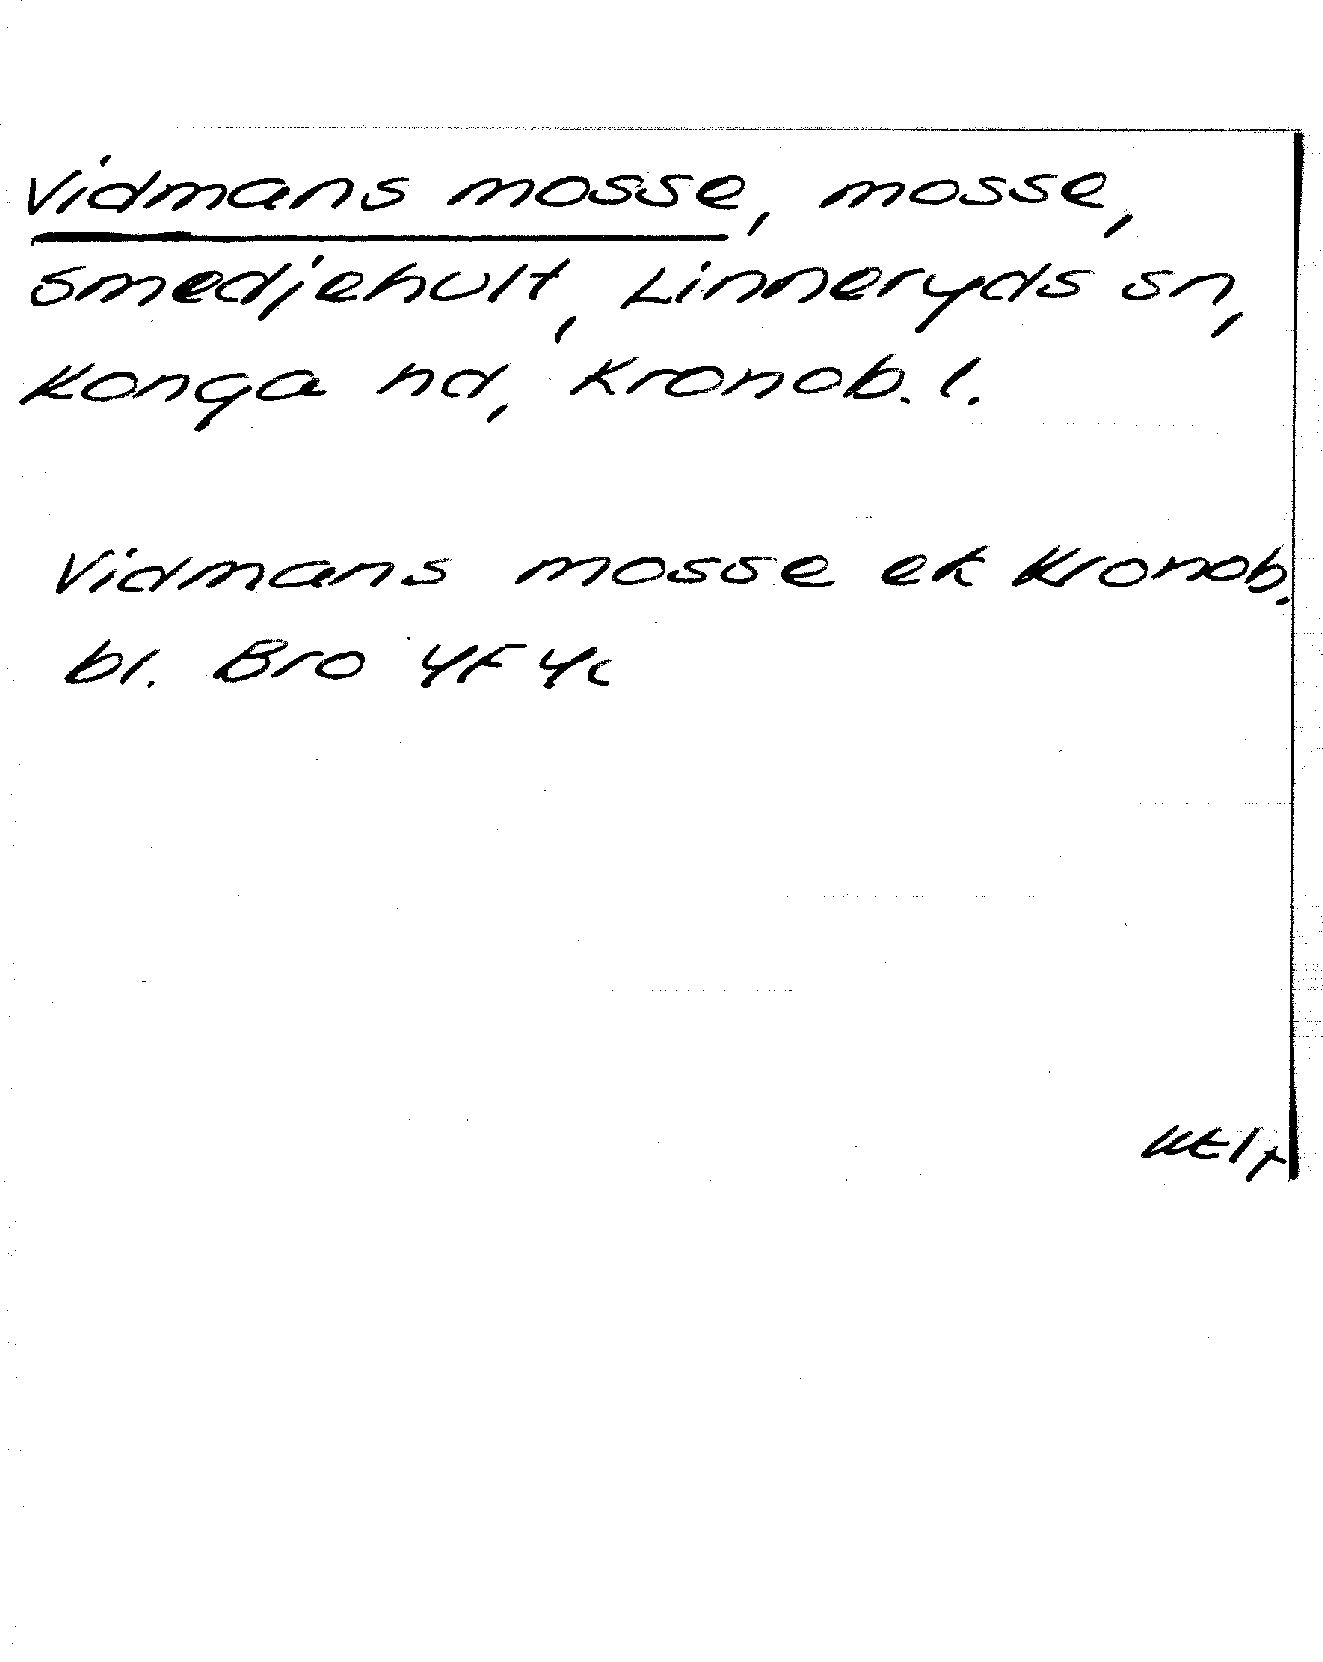 Vidmans mosse, mosse,
Smedjehult, Linneryds sn,
Konga hd, Kronob. l.
Vidmans mosse ek Kronob.
bl. Bro 4F 4c